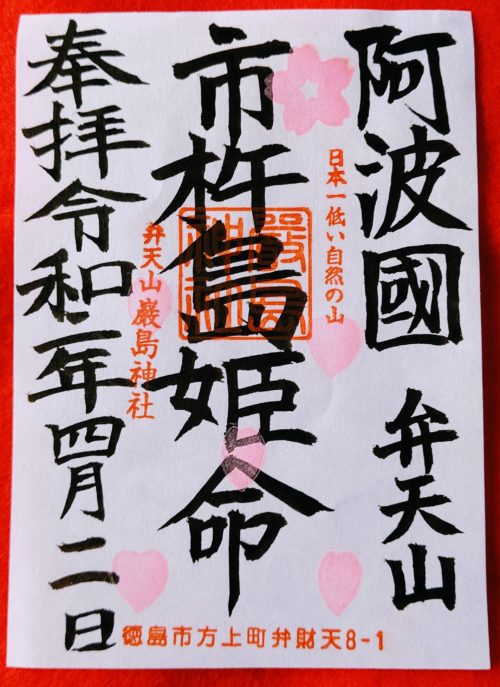 阿波國 弁天山
日本一低い自然の山
市杵島姫命
嚴島神社
弁天山 巌島神社
奉拝令和二年四月二日
徳島市方上町弁財天8-1